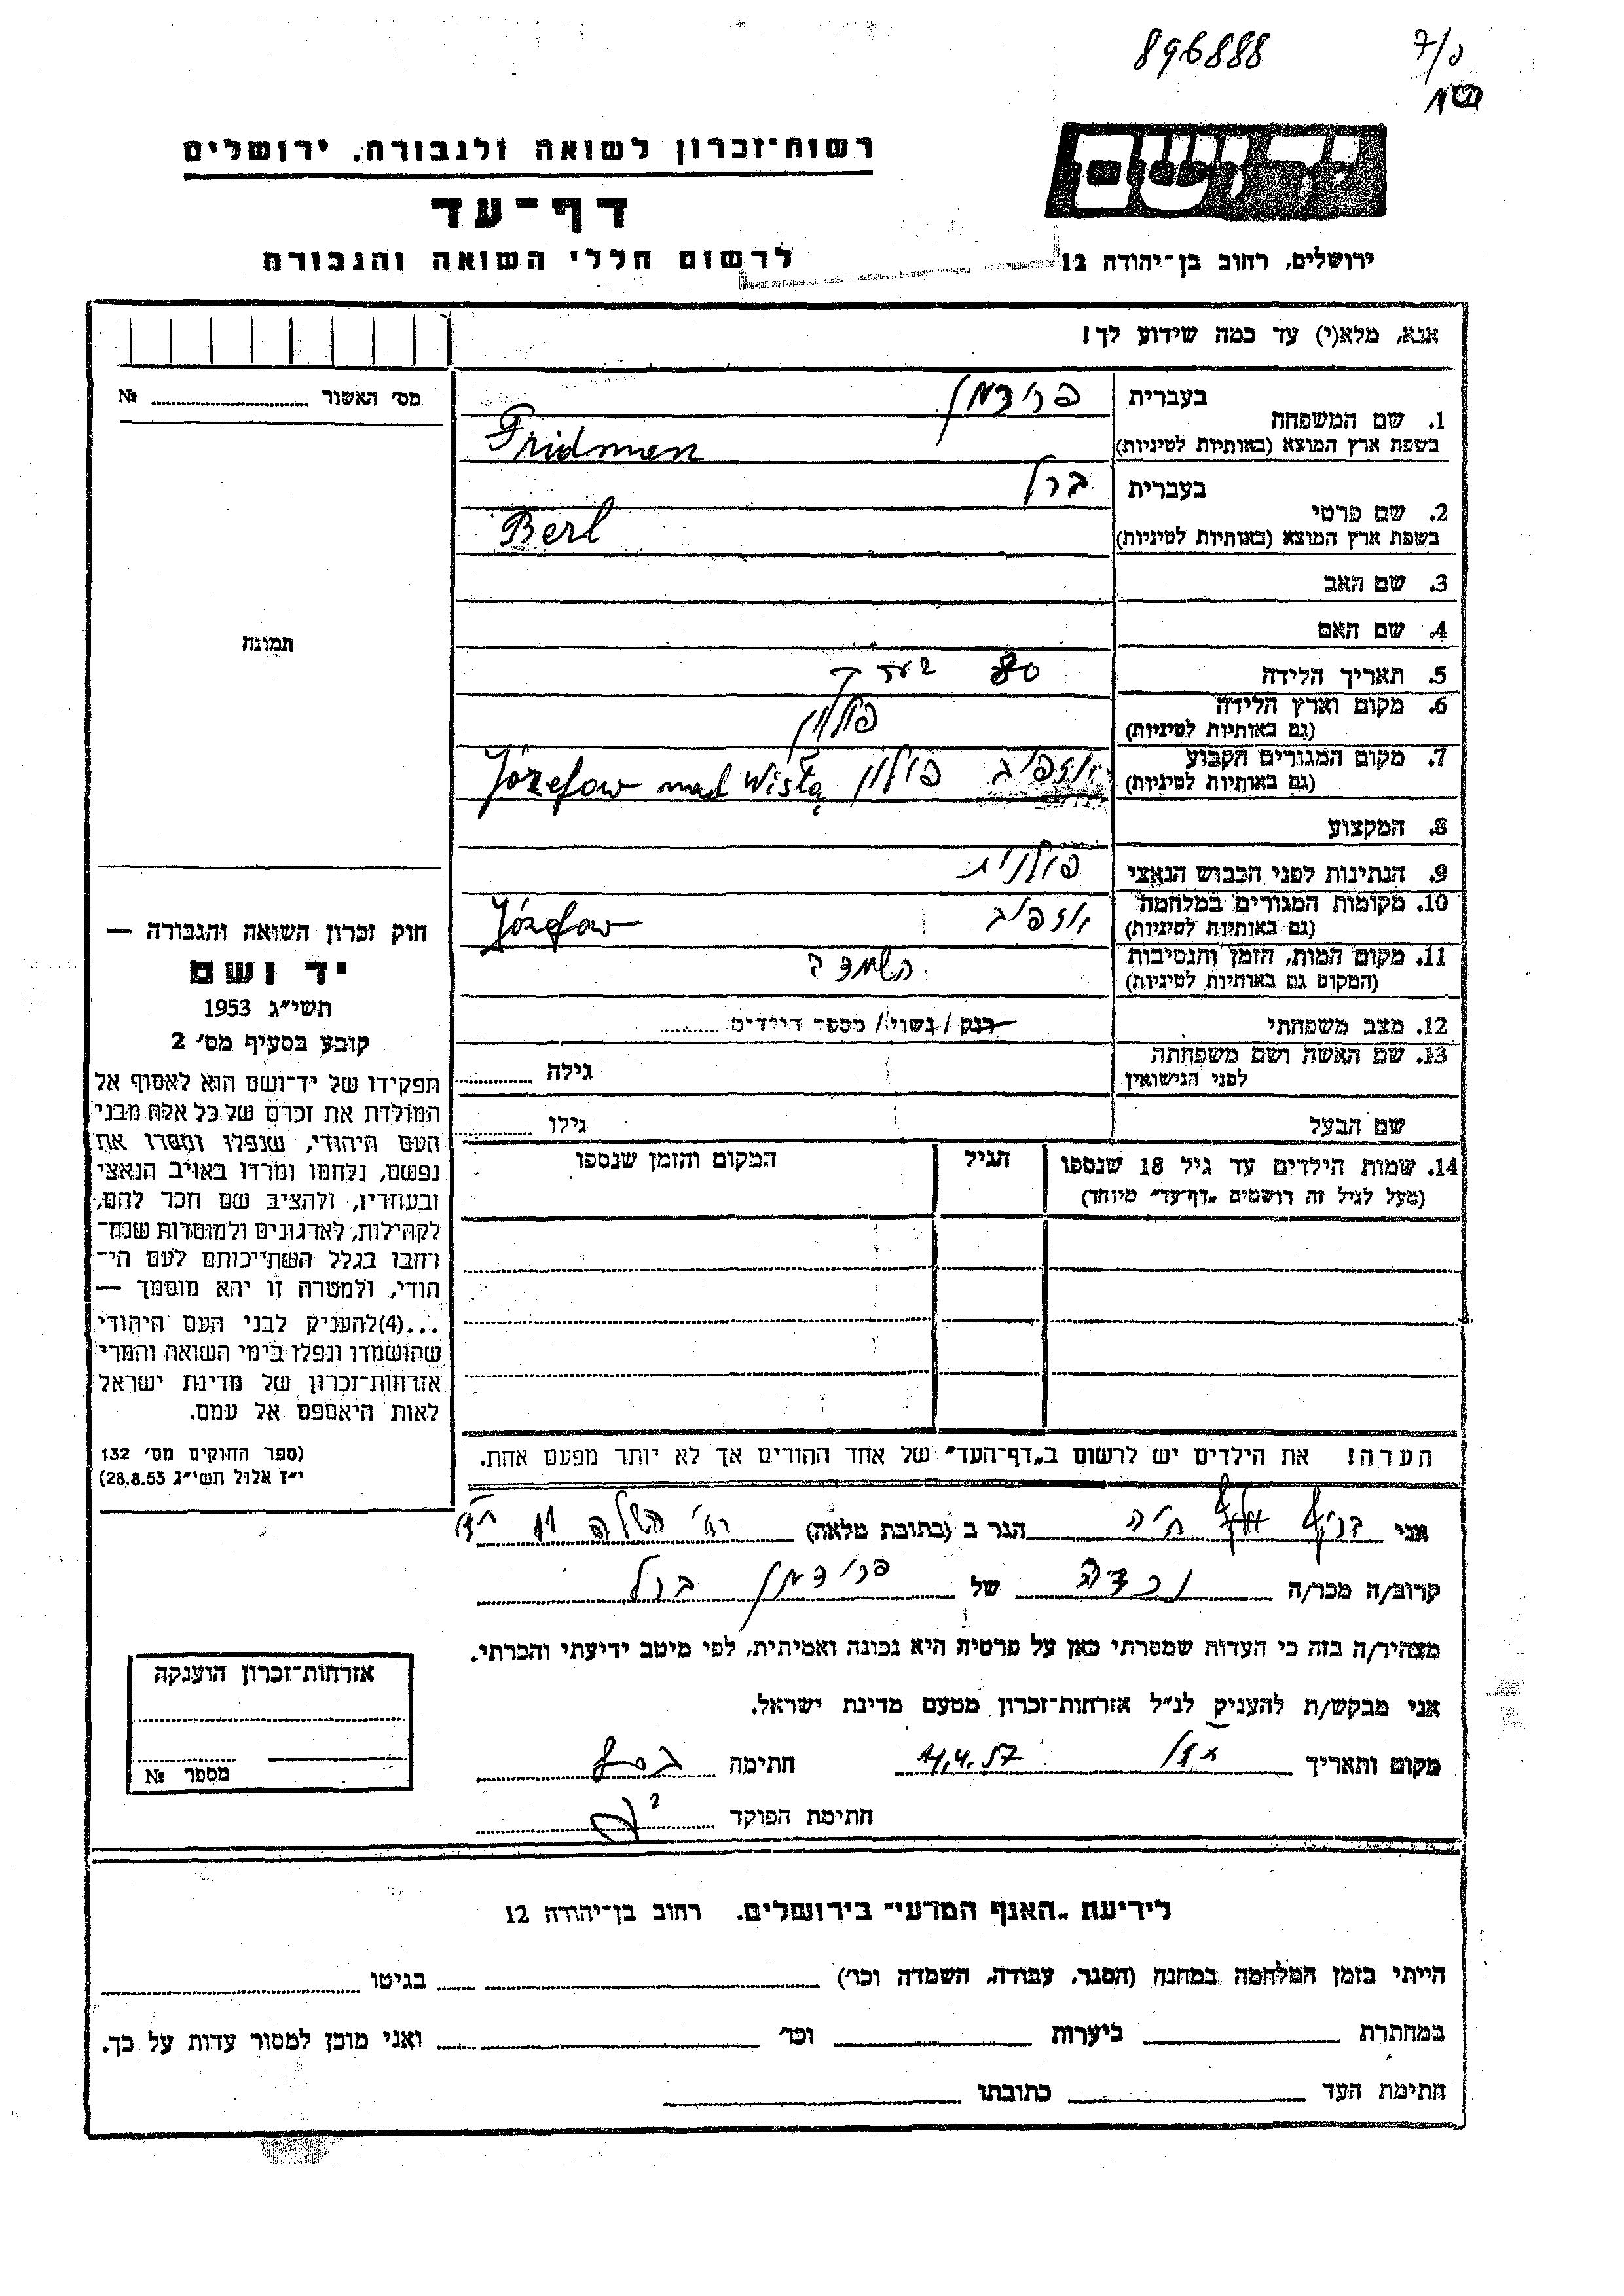 896888
7/פ
יד ושם
רשות־זכרון לשואה ולגבורה, ירושלים
דף־עד
לרשום חללי השואה והגבורה
ירושלים, רחוב בן־יהודה 12
אנא, מלא(י) עד כמה שידוע לך!
מס׳ האשור № 
1. שם המשפחה בעברית פרידמן
בשפת ארץ המוצא (באותיות לטיניות) Fridmen
2. שם פרטי בעברית ברל
בשפת ארץ המוצא (באותיות לטיניות) Berl
3. שם האב
4. שם האם
תמונה
5. תאריך הלידה 80
6. מקום וארץ הלידה
(גם באותיות לטיניות) פולין
7. מקום המגורים הקבוע
(גם באותיות לטיניות) יוזפוב פולין Józefow nad Wisłą
8. המקצוע
9. הנתינות לפני הכבוש הנאצי פולנית
10. מקומות המגורים במלחמה
(גם באותיות לטיניות) יוזפוב Józefow
11. מקום המות, הזמן והנסיבות
(המקום גם באותיות לטיניות) השמדה
12. מצב משפחתי רווק / נשוי / מספר הילדים
13. שם האשה ושם משפחתה
לפני הנישואין גילה
שם הבעל גילו
14. שמות הילדים עד גיל 18 שנספו הגיל המקום והזמן שנספו
(מעל לגיל זה רושמים „דף־עד״ מיוחד)
הערה! את הילדים יש לרשום ב„דף־העד״ של אחד ההורים אך לא יותר מפעם אחת.
חוק זכרון השואה והגבורה —
יד ושם
תשי״ג 1953
קובע בסעיף מס׳ 2
תפקידו של יד־ושם הוא לאסוף אל
המולדת את זכרם של כל אלה מבני
העם היהודי, שנפלו ומסרו את
נפשם, נלחמו ומרדו באויב הנאצי
ובעוזריו, ולהציב שם וזכר להם,
לקהילות, לארגונים ולמוסדות שנח־
רבו בגלל השתייכותם לעם הי־
הודי, ולמטרה זו יהא מוסמך —
...(4) להעניק לבני העם היהודי
שהושמדו ונפלו בימי השואה והמרי
אזרחות־זכרון של מדינת ישראל
לאות היאספם אל עמם.
(ספר החוקים מס׳ 132
י״ז אלול תשי״ג 28.8.53)
אני חיה הגר ב (כתובת מלאה) רח׳
קרוב/ה מכר/ה נכדה של פרידמן ברל
מצהיר/ה בזה כי העדות שמסרתי כאן על פרטיה היא נכונה ואמיתית, לפי מיטב ידיעתי והכרתי.
אני מבקש/ת להעניק לנ״ל אזרחות־זכרון מטעם מדינת ישראל.
מקום ותאריך 11.4.57 חתימה
חתימת הפוקד
אזרחות־זכרון הוענקה
מספר №
לידיעת „האגף המדעי״ בירושלים. רחוב בן־יהודה 12
הייתי בזמן המלחמה במחנה (הסגר, עבודה, השמדה וכו׳) בגיטו
במחתרת ביערות וכו׳ ואני מוכן למסור עדות על כך.
חתימת העד כתובתו